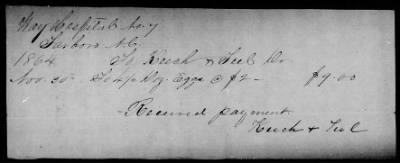 Way Hospital No. 7
Tarboro N.C.
1864 To Keech & Teel Dr
Nov. 20 To 4½ Doz. Eggs @ $2 — $9.00
Received payment
Keech & Teel